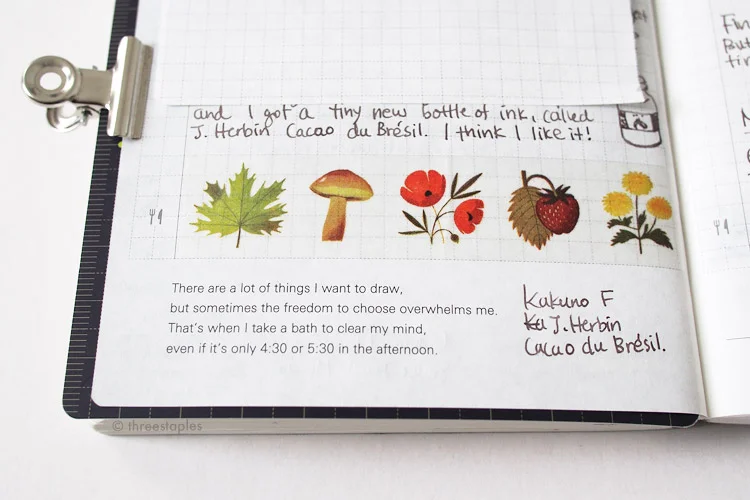 and I got a tiny new bottle of ink, called
J. Herbin Cacao du Brésil. I think I like it!
There are a lot of things I want to draw,
but sometimes the freedom to choose overwhelms me.
That's when I take a bath to clear my mind,
even if it's only 4:30 or 5:30 in the afternoon.
Kakuno F
J. Herbin
Cacao du Brésil.
© threestaples